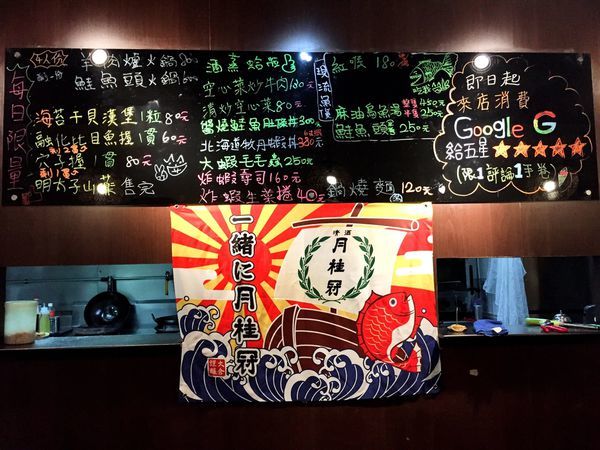 每日限量
羊肉爐火鍋80元
鮭魚頭火鍋80元
海苔干貝漢堡1粒80元
融化比目魚握1貫60元
穴子握1貫80元
明太子山藥 售完
酒蒸蛤蜊
空心菜炒牛肉180元
清炒空心菜80元
北海道牡丹蝦丼380元
大蝦毛毛蟲250元
炸蝦壽司160元
炸蝦生菜捲
現流魚隻
紅喉180
麻油烏魚
450元
250元
鮭魚頭 250元
鍋燒麵 120元
即日起
來店消費
Google G
給五星★★★★★
一緒に月桂冠
清酒
月桂冠